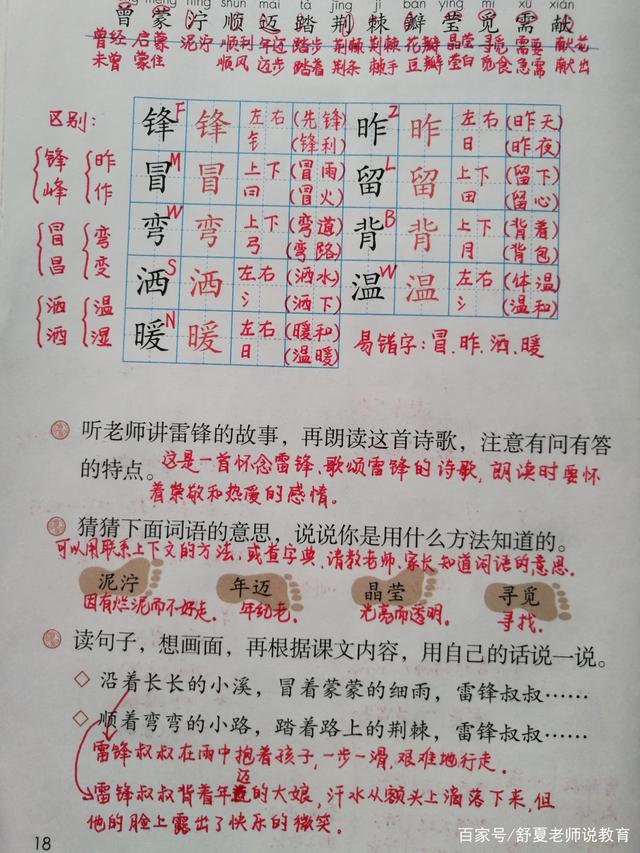 céng méng nìng shùn mài tà jīng jí bàn yíng mì xū xiàn
曾 蒙 泞 顺 迈 踏 荆 棘 瓣 莹 觅 需 献
曾经 启蒙 泥泞 顺利 年迈 踏步 荆棘 荆棘 花瓣 晶莹 寻觅 需要 献花
未曾 蒙住 顺风 迈步 踏着 荆条 棘手 豆瓣 莹白 觅食 急需 献出
区别:
锋 昨
峰 作
冒 弯
昌 变
洒 温
酒 湿
锋 F 锋 左右 钅 (先锋) (锋利) 昨 Z 昨 左右 日 (昨天) (昨夜)
冒 M 冒 上下 曰 (冒雨) (冒火) 留 L 留 上下 田 (留下) (留心)
弯 W 弯 上下 弓 (弯道) (弯路) 背 B 背 上下 月 (背着) (背包)
洒 S 洒 左右 氵 (洒水) (洒下) 温 W 温 左右 氵 (体温) (温和)
暖 N 暖 左右 日 (暖和) (温暖) 易错字:冒、昨、洒、暖
听老师讲雷锋的故事，再朗读这首诗歌，注意有问有答
的特点。这是一首怀念雷锋、歌颂雷锋的诗歌，朗读时要怀
着崇敬和热爱的感情。
猜猜下面词语的意思，说说你是用什么方法知道的。
可以用联系上下文的方法，或查字典、请教老师、家长知道词语的意思.
泥泞 年迈 晶莹 寻觅
因有烂泥而不好走。 年纪老。 光亮而透明。 寻找.
读句子，想画面，再根据课文内容，用自己的话说一说。
◇ 沿着长长的小溪，冒着蒙蒙的细雨，雷锋叔叔……
◇ 顺着弯弯的小路，踏着路上的荆棘，雷锋叔叔……
雷锋叔叔在雨中抱着孩子，一步一滑，艰难地行走.
雷锋叔叔背着年迈的大娘，汗水从额头上滴落下来，但
他的脸上露出了快乐的微笑。
18
百家号/舒夏老师说教育